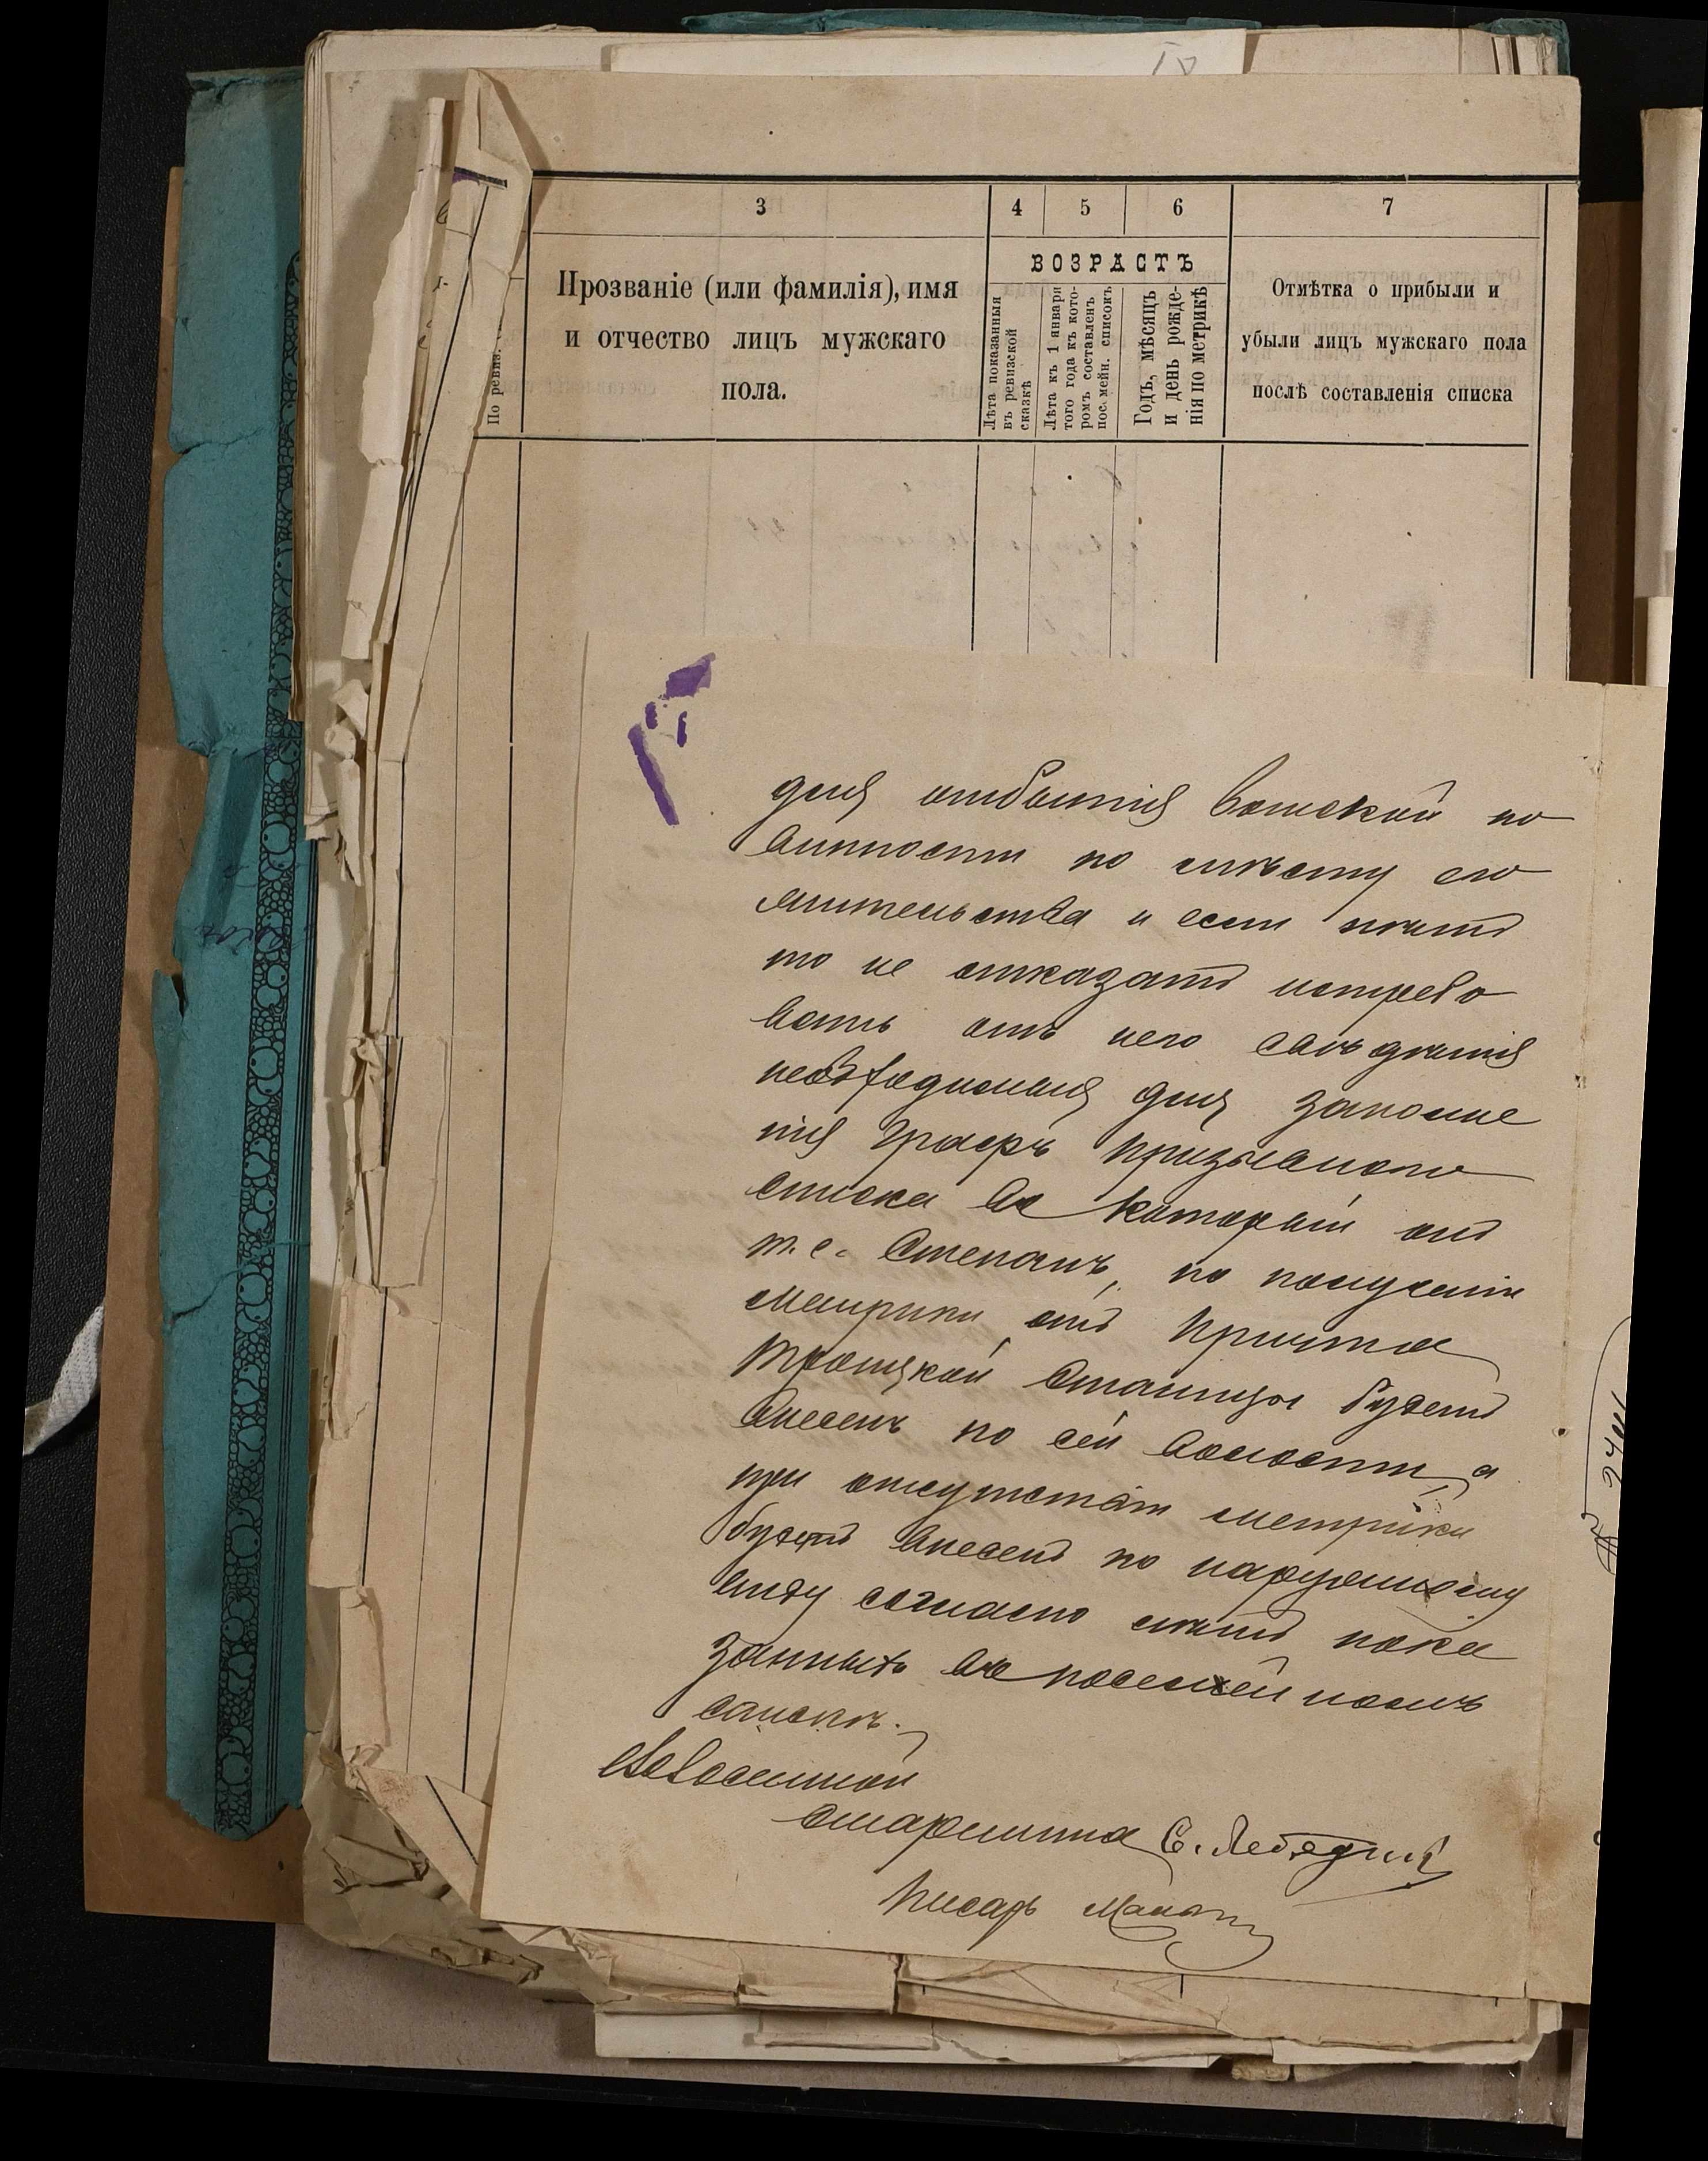 3
4
5
6
7
ВОЗРАСТЪ
Прозваніе (или фамилія), имя
и отчество лицъ мужскаго
пола.
Лѣта показанныя
въ ревизской
сказкѣ
Лѣта къ 1 января
того года къ кото-
ромъ составленъ
посемейн. списокъ
Годъ, мѣсяцъ
и день рожде-
нія по метрикѣ
Отмѣтка о прибыли и
убыли лицъ мужскаго пола
послѣ составленія списка
По ревиз.
для отбытія воинской по
винности по мѣсту его
жительства и если нѣтъ
то не отказать истребо
вать отъ него свѣдѣнія
необходимыя для заполне
нія графъ призывного
списка въ который онъ
т. е. Степанъ, по полученіи
метрики отъ причта
Троицкой Станицы будетъ
внесенъ по сей волости, а
при отсутствіи метрики
будетъ внесенъ по наружному
виду согласно лѣтъ пока
занныхъ въ посемейномъ
спискѣ.
Волостной
Старшина С. Лебедин
Писарь